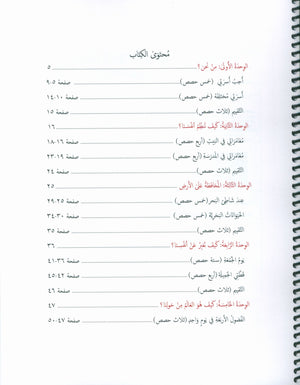 مُحتَوَى الكِتَاب
الوحدَةُ الأُولَى: مَنْ نَحنُ؟ ٥
أُحِبُّ أُسرَتِي (خمس حصص) صفحة ٥-٩
أُسرَتِي مُختَلِفَة (خمس حصص) صفحة ١٠-١٤
التَّقيِيم (ثلاث حصص) صفحة ١٥
الوحدَةُ الثَّانِيَةُ: كَيفَ نُنَظِّمُ أَنفُسَنَا؟ ١٦
مُغَامَرَاتِي فِي البَيتِ (أربع حصص) صفحة ١٦-١٨
مُغَامَرَاتِي فِي المَدرَسَةِ (أربع حصص) صفحة ١٩-٢٣
التَّقيِيم (ثلاث حصص) صفحة ٢٤
الوحدَةُ الثَّالِثَةُ: المُحَافَظَةُ عَلَى الأَرضِ ٢٥
عِندَ شَاطِئِ البَحرِ (خمس حصص) صفحة ٢٥-٢٩
الحَيَوَانَاتُ البَحرِيَّةُ (خمس حصص) صفحة ٣٠-٣٤
التَّقيِيم (ثلاث حصص) صفحة ٣٥
الوحدَةُ الرَّابِعَةُ: كَيفَ نُعَبِّرُ عَنْ أَنفُسِنَا؟ ٣٦
يَومُ الجُمُعَةِ (ستة حصص) صفحة ٣٦-٤١
قِطَّتِي الجَمِيلَةُ (أربع حصص) صفحة ٤٢-٤٥
التَّقيِيم (ثلاث حصص) صفحة ٤٦
الوحدَةُ الخَامِسَةُ: كَيفَ هُوَ العَالَمُ مِنْ حَولِنَا؟ ٤٧
الفُصُولُ الأَربَعَةُ فِي يَومٍ وَاحِدٍ (ثلاث حصص) صفحة ٤٧-٥٠